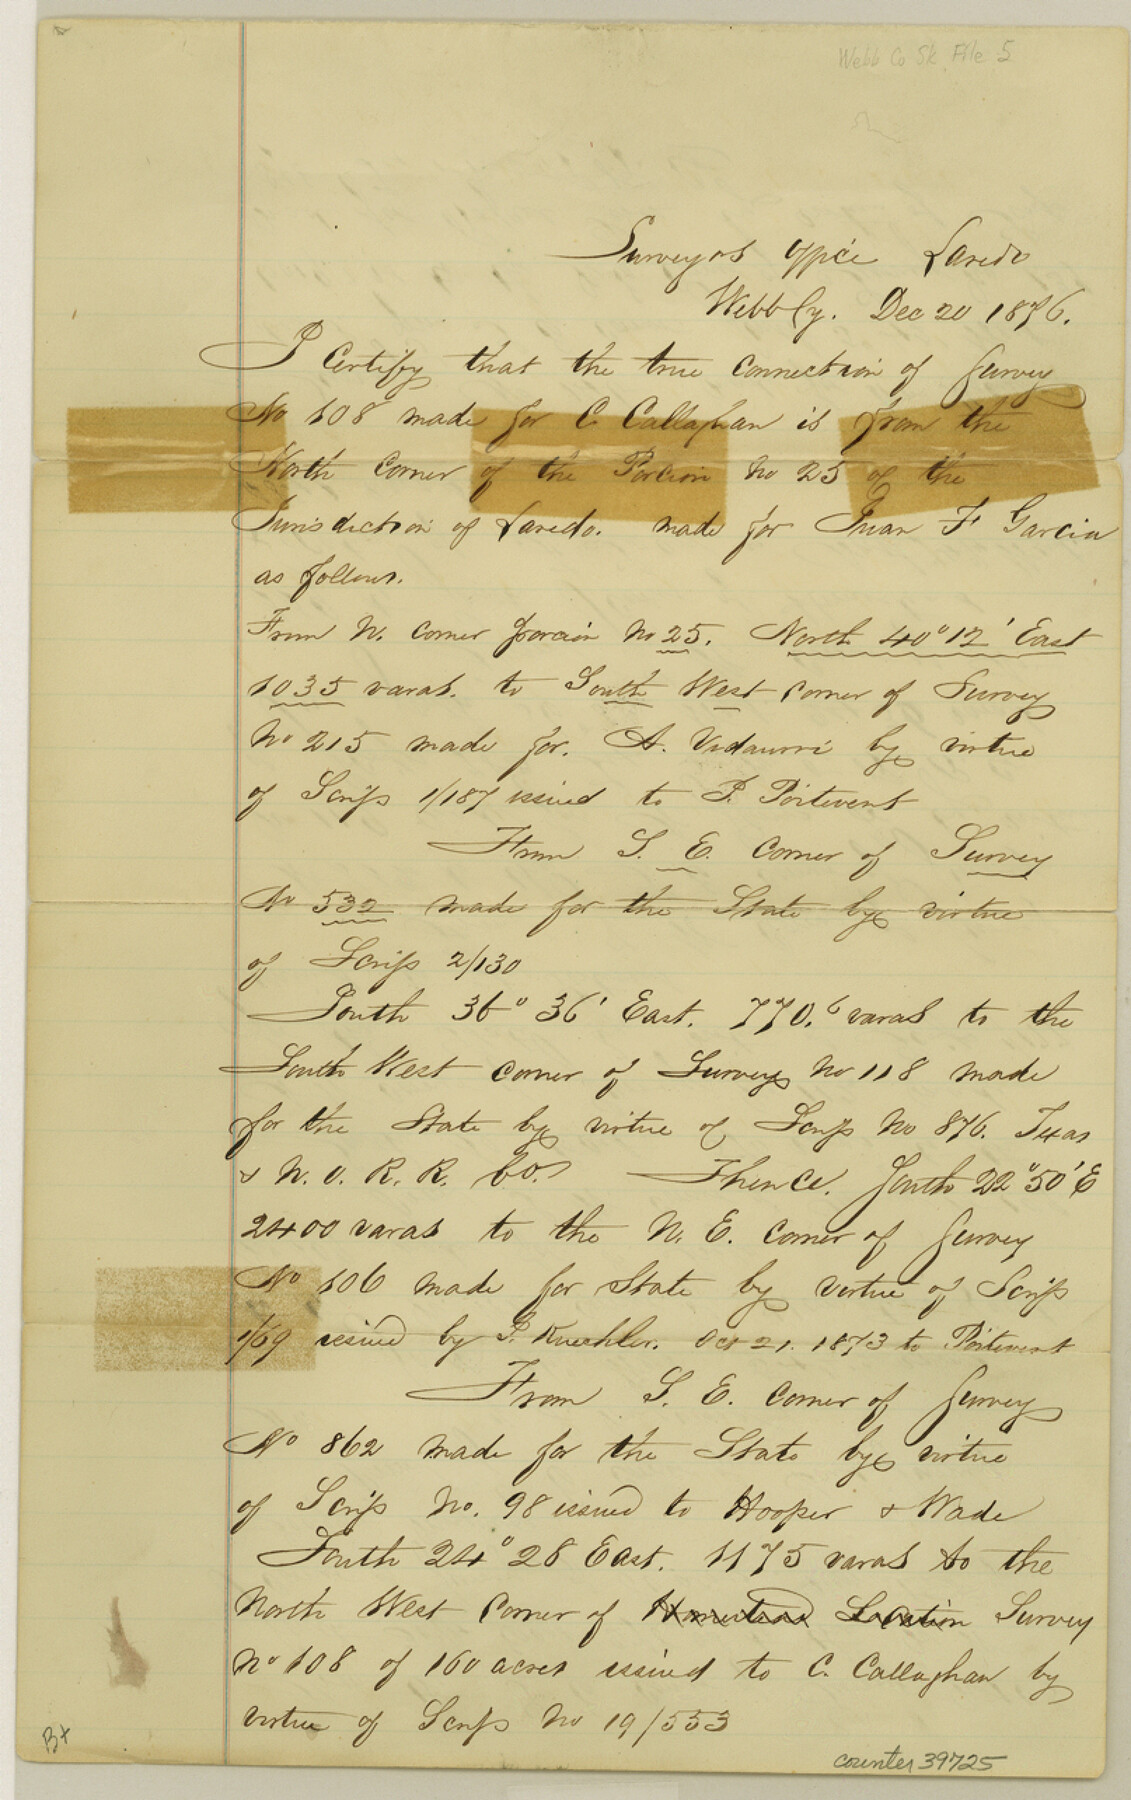 Webb Co Sk. File 5
Surveyors Office Laredo
Webb Cy. Dec 20 1876.
I Certify that the true connection of Survey
No 108 made for C. Callaghan is from the
North Corner of the Porcion No 25 of the
Jurisdiction of Laredo. made for Juan F. Garcia
as follows.
From N. Corner porcion No 25. North 40° 12' East
1035 varas. to South West Corner of Survey
No 215 made for. A. Vidaurri by virtue
of Scrip 1/187 issued to P. Poitevent
From S. E. Corner of Survey
No 532 made for the State by virtue
of Scrip 2/130
South 36° 36' East. 770.6 varas to the
South West corner of Survey No 118 made
for the State by virtue of Scrip No 876. Texas
& N. O. R. R. Co. Thence. South 22° 50' E
2400 varas to the N. E. Corner of Survey
No 106 made for State by virtue of Scrip
1/69 issued by J. Kuechler. Oct 21. 1873 to Poitevent
From S. E. Corner of Survey
No 862 made for the State by virtue
of Scrip No. 98 issued to Hooper & Wade
South 24° 28 East. 1175 varas to the
North West Corner of Homestead Location Survey
No 108 of 160 acres issued to C. Callaghan by
virtue of Scrip No 19/553
B+
counter 39725